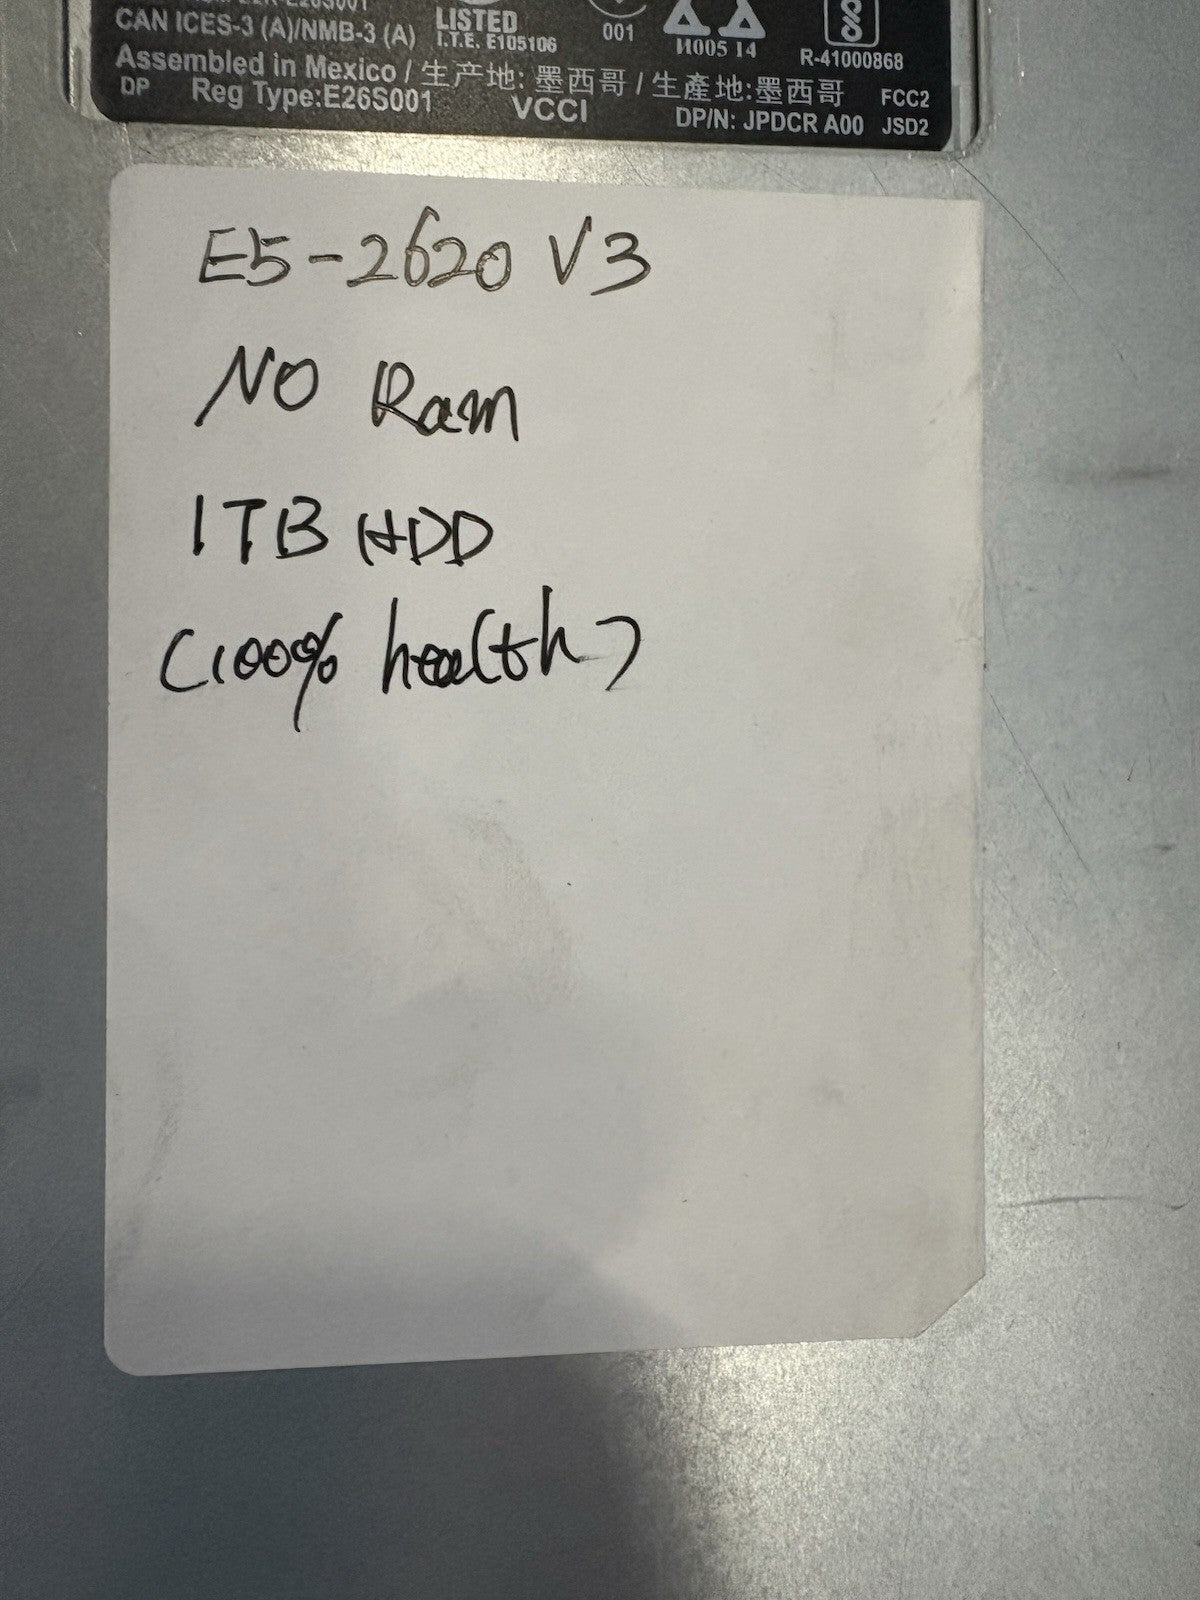 CAN ICES-3 (A)/NMB-3 (A)
LISTED
I.T.E. E105106
001
И005 14
R-41000868
Assembled in Mexico / 生产地: 墨西哥 / 生產地:墨西哥
DP Reg Type:E26S001 VCCI
FCC2
DP/N: JPDCR A00 JSD2
E5-2620 V3
NO Ram
1TB HDD
(100% health)